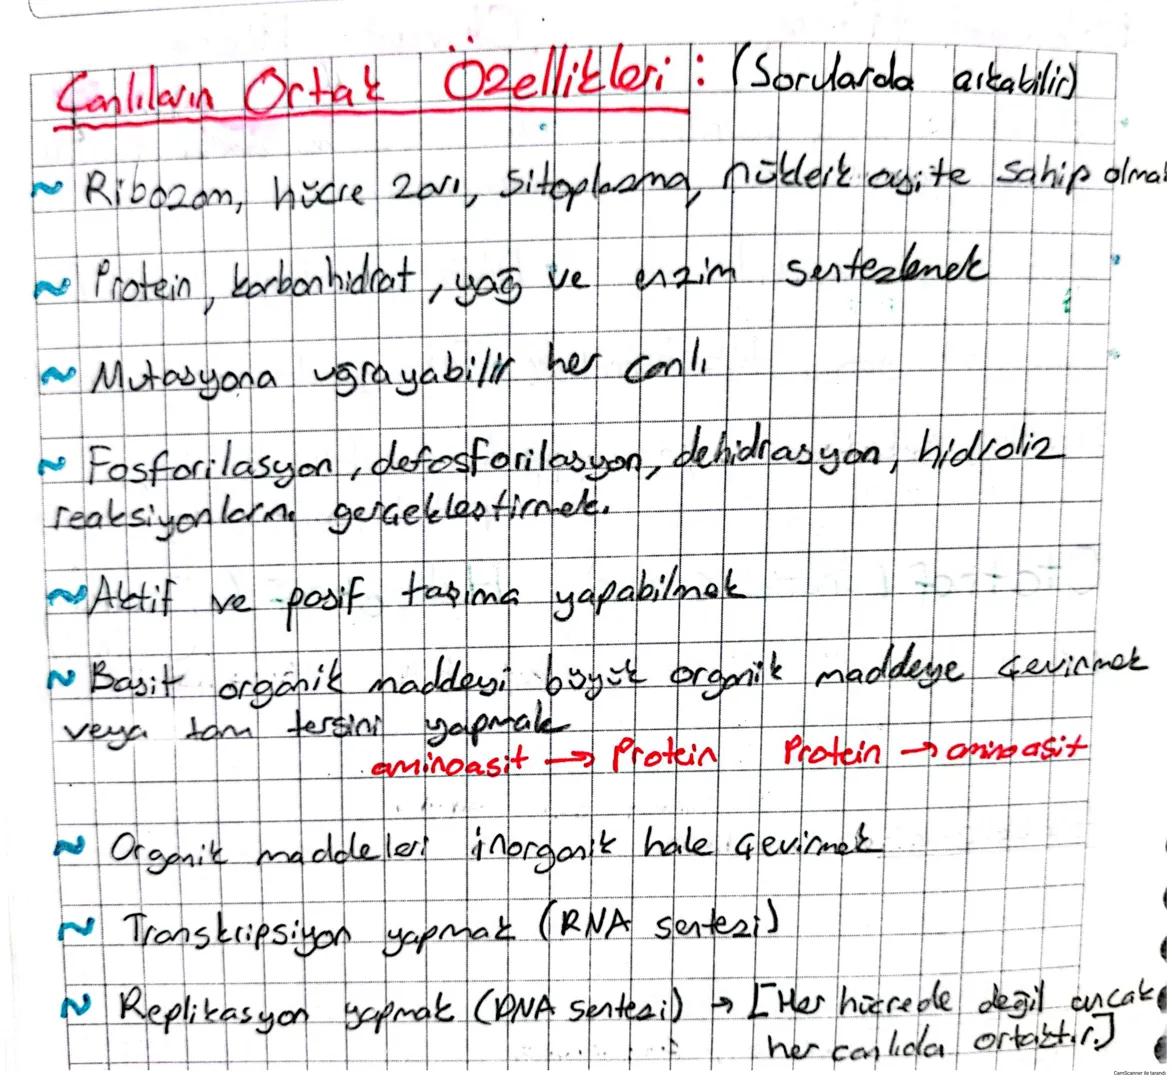 Canlıların Ortak Özellikleri : (Sorularda çıkabilir)
~ Ribozom, hücre zarı, sitoplazma, nükleik asite sahip olmak
~ Protein, karbonhidrat, yağ ve enzim sentezlemek
~ Mutasyona uğrayabilir her canlı
~ Fosforilasyon, defosforilasyon, dehidrasyon, hidroliz
reaksiyonlarını gerçekleştirmek.
~ Aktif ve pasif taşıma yapabilmek
~ Basit organik maddeyi büyük organik maddeye çevirmek
veya tam tersini yapmak
aminoasit → Protein Protein → aminoasit
~ Organik maddeleri inorganik hale çevirmek
~ Transkripsiyon yapmak (RNA sentezi)
~ Replikasyon yapmak (DNA sentezi) → [Her hücrede değil ancak
her canlıda ortaktır.]
CamScanner ile tarandı